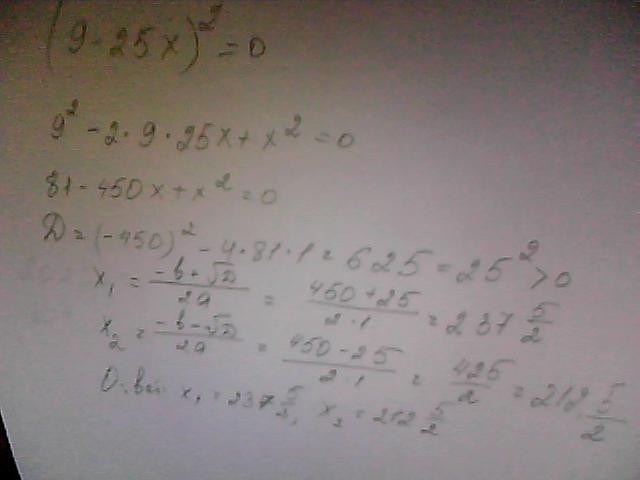 (9-25x)² = 0
9² - 2·9·25x + x² = 0
81 - 450x + x² = 0
D = (-450)² - 4·81·1 = 625 = 25² > 0
x₁ = (-b+√D)/2a = (450+25)/(2·1) = 237 5/2
x₂ = (-b-√D)/2a = (450-25)/(2·1) = 425/2 = 212 5/2
x₁ = 237 5/2, x₂ = 212 5/2